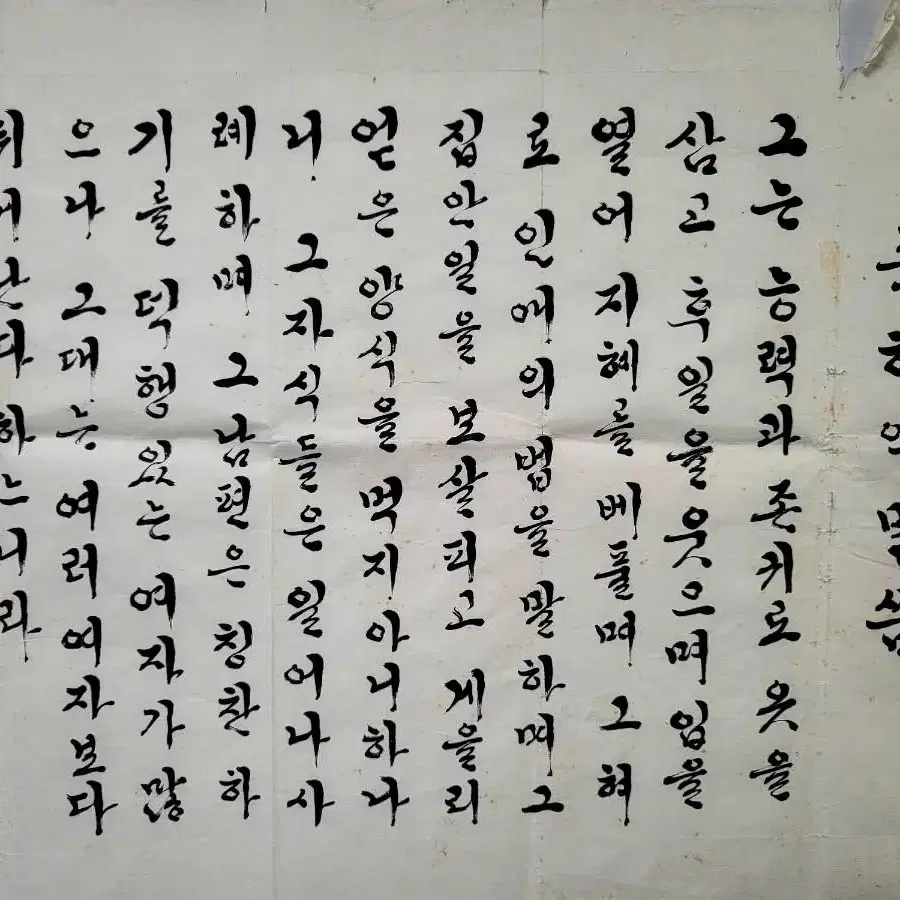 그는 능력과 존귀로 옷을
삼고 후일을 웃으며 입을
열어 지혜를 베풀며 그 혀
로 인애의 법을 말하며 그
집안일을 보살피고 게을리
얻은 양식을 먹지 아니하나
니. 그 자식들은 일어나 사
례하며 그 남편은 칭찬하
기를 덕행있는 여자가 많
으나 그대는 여러 여자보다
뛰어난다 하느니라